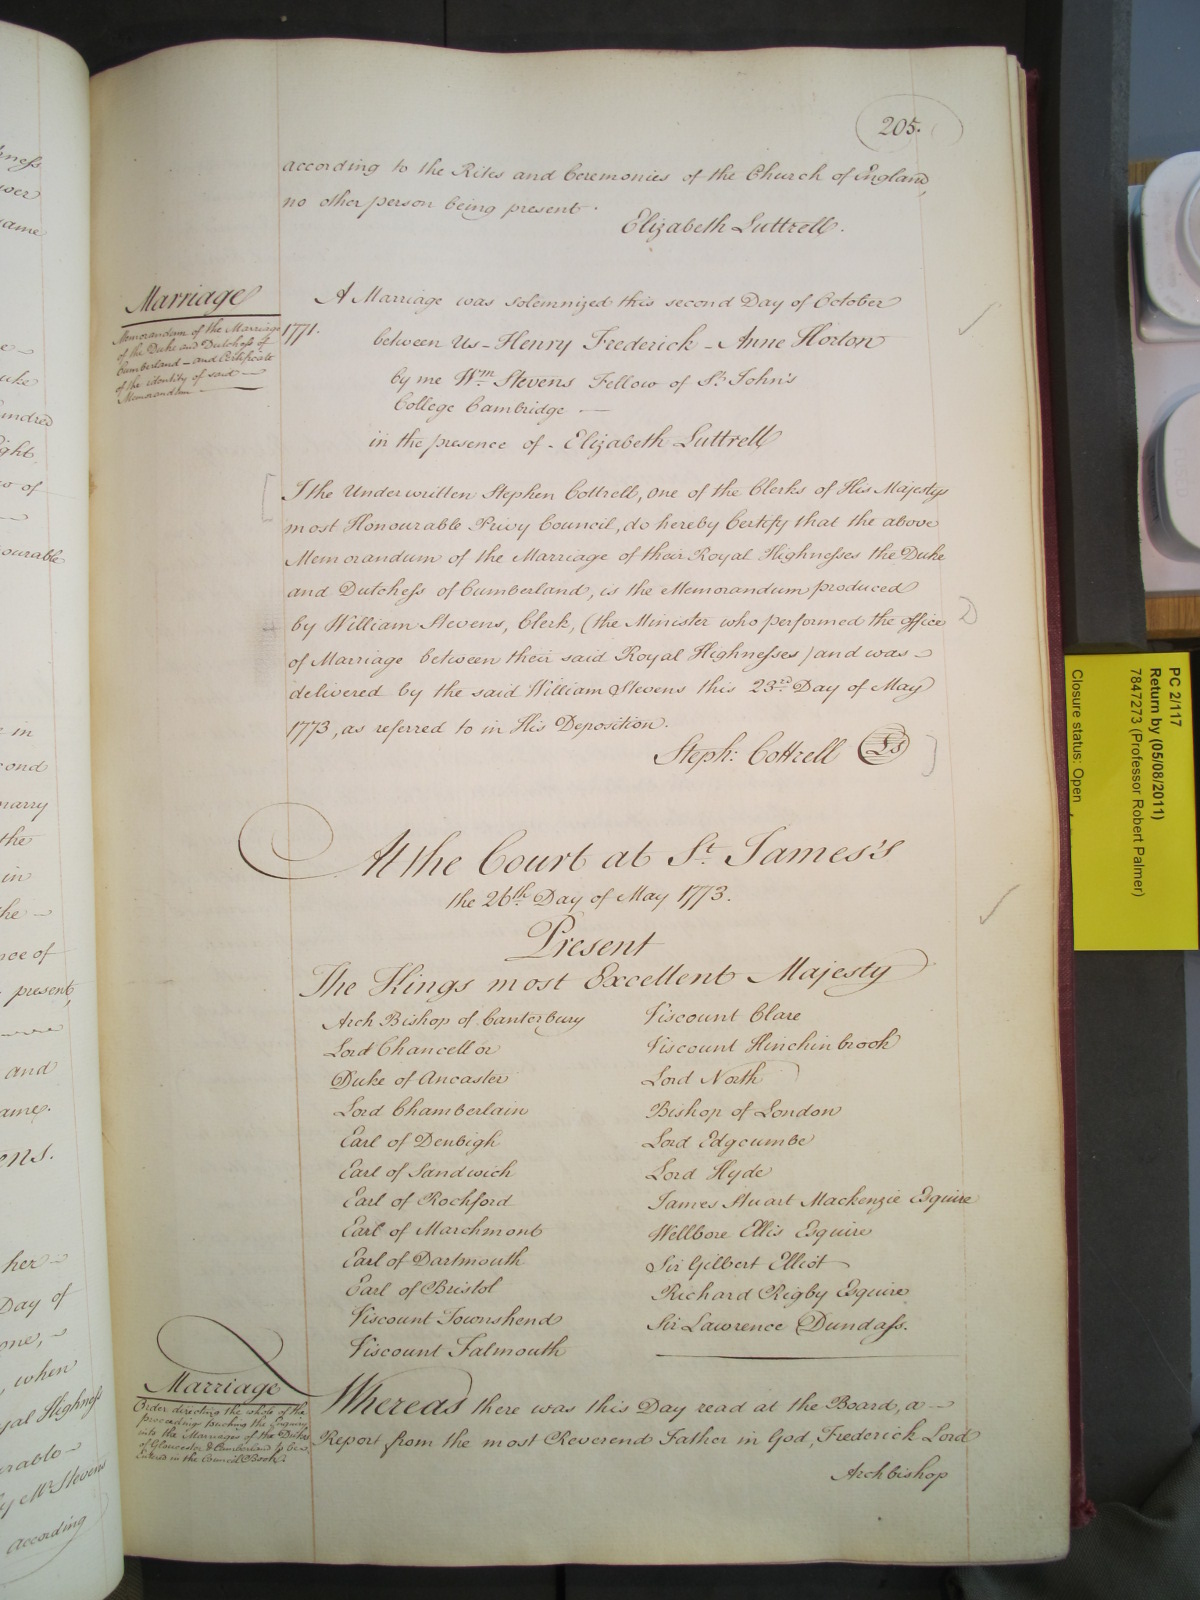 205.
according to the Rites and Ceremonies of the Church of England,
no other person being present.
Elizabeth Luttrell.
Marriage
Memorandum of the Marriage
of the Duke and Dutchess of
Cumberland - and Certificate
of the identity of said
Memorandum
A Marriage was solemnized this second Day of October
1771.
between Us - Henry Frederick - Anne Horton
by me Wm. Stevens Fellow of St. John's
College Cambridge —
in the presence of - Elizabeth Luttrell
I the Underwritten Stephen Cottrell, one of the Clerks of His Majestys
most Honourable Privy Council, do hereby Certify that the above
Memorandum of the Marriage of their Royal Highnesses the Duke
and Dutchess of Cumberland, is the Memorandum produced
by William Stevens, Clerk, (the Minister who performed the office
of Marriage between their said Royal Highnesses) and was -
delivered by the said William Stevens this 23rd. Day of May
1773, as referred to in His Deposition.
Steph: Cottrell Ls
At the Court at St. James's
the 26th. Day of May 1773.
Present
The Kings most Excellent Majesty
Arch Bishop of Canterbury
Lord Chancellor
Duke of Ancaster
Lord Chamberlain
Earl of Denbigh
Earl of Sandwich
Earl of Rochford
Earl of Marchmont
Earl of Dartmouth
Earl of Bristol
Viscount Townshend
Viscount Falmouth
Viscount Clare
Viscount Hinchinbrook
Lord North
Bishop of London
Lord Edgcumbe
Lord Hyde
James Stuart Mackenzie Esquire
Wellbore Ellis Esquire
Sir Gilbert Elliot
Richard Rigby Esquire
Sir Lawrence Dundass.
Marriage
Order directing the whole of the
proceedings touching the Enquiry
into the Marriages of the Dukes
of Gloucester & Cumberland to be
Entered in the Council Book.
Whereas there was this Day read at the Board, a -
Report from the most Reverend Father in God, Frederick Lord
Archbishop
PC 2/117
Return by (05/08/2011)
7847273 (Professor Robert Palmer)
Closure status: Open